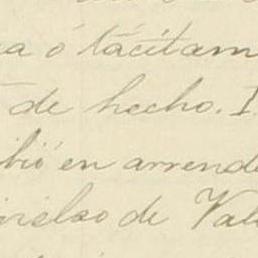 a ó tácitam
de hecho. I
bió en arrend
de Val